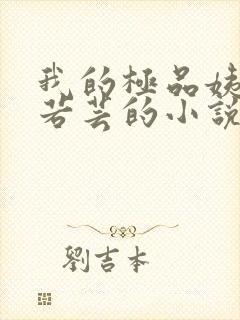 我的極品姨
若芸的小說
劉吉本